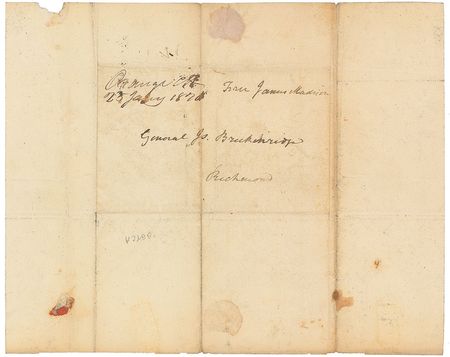 Orange C.H.
23 Jany 1821
Free James Madison
General Js. Breckinridge
Richmond